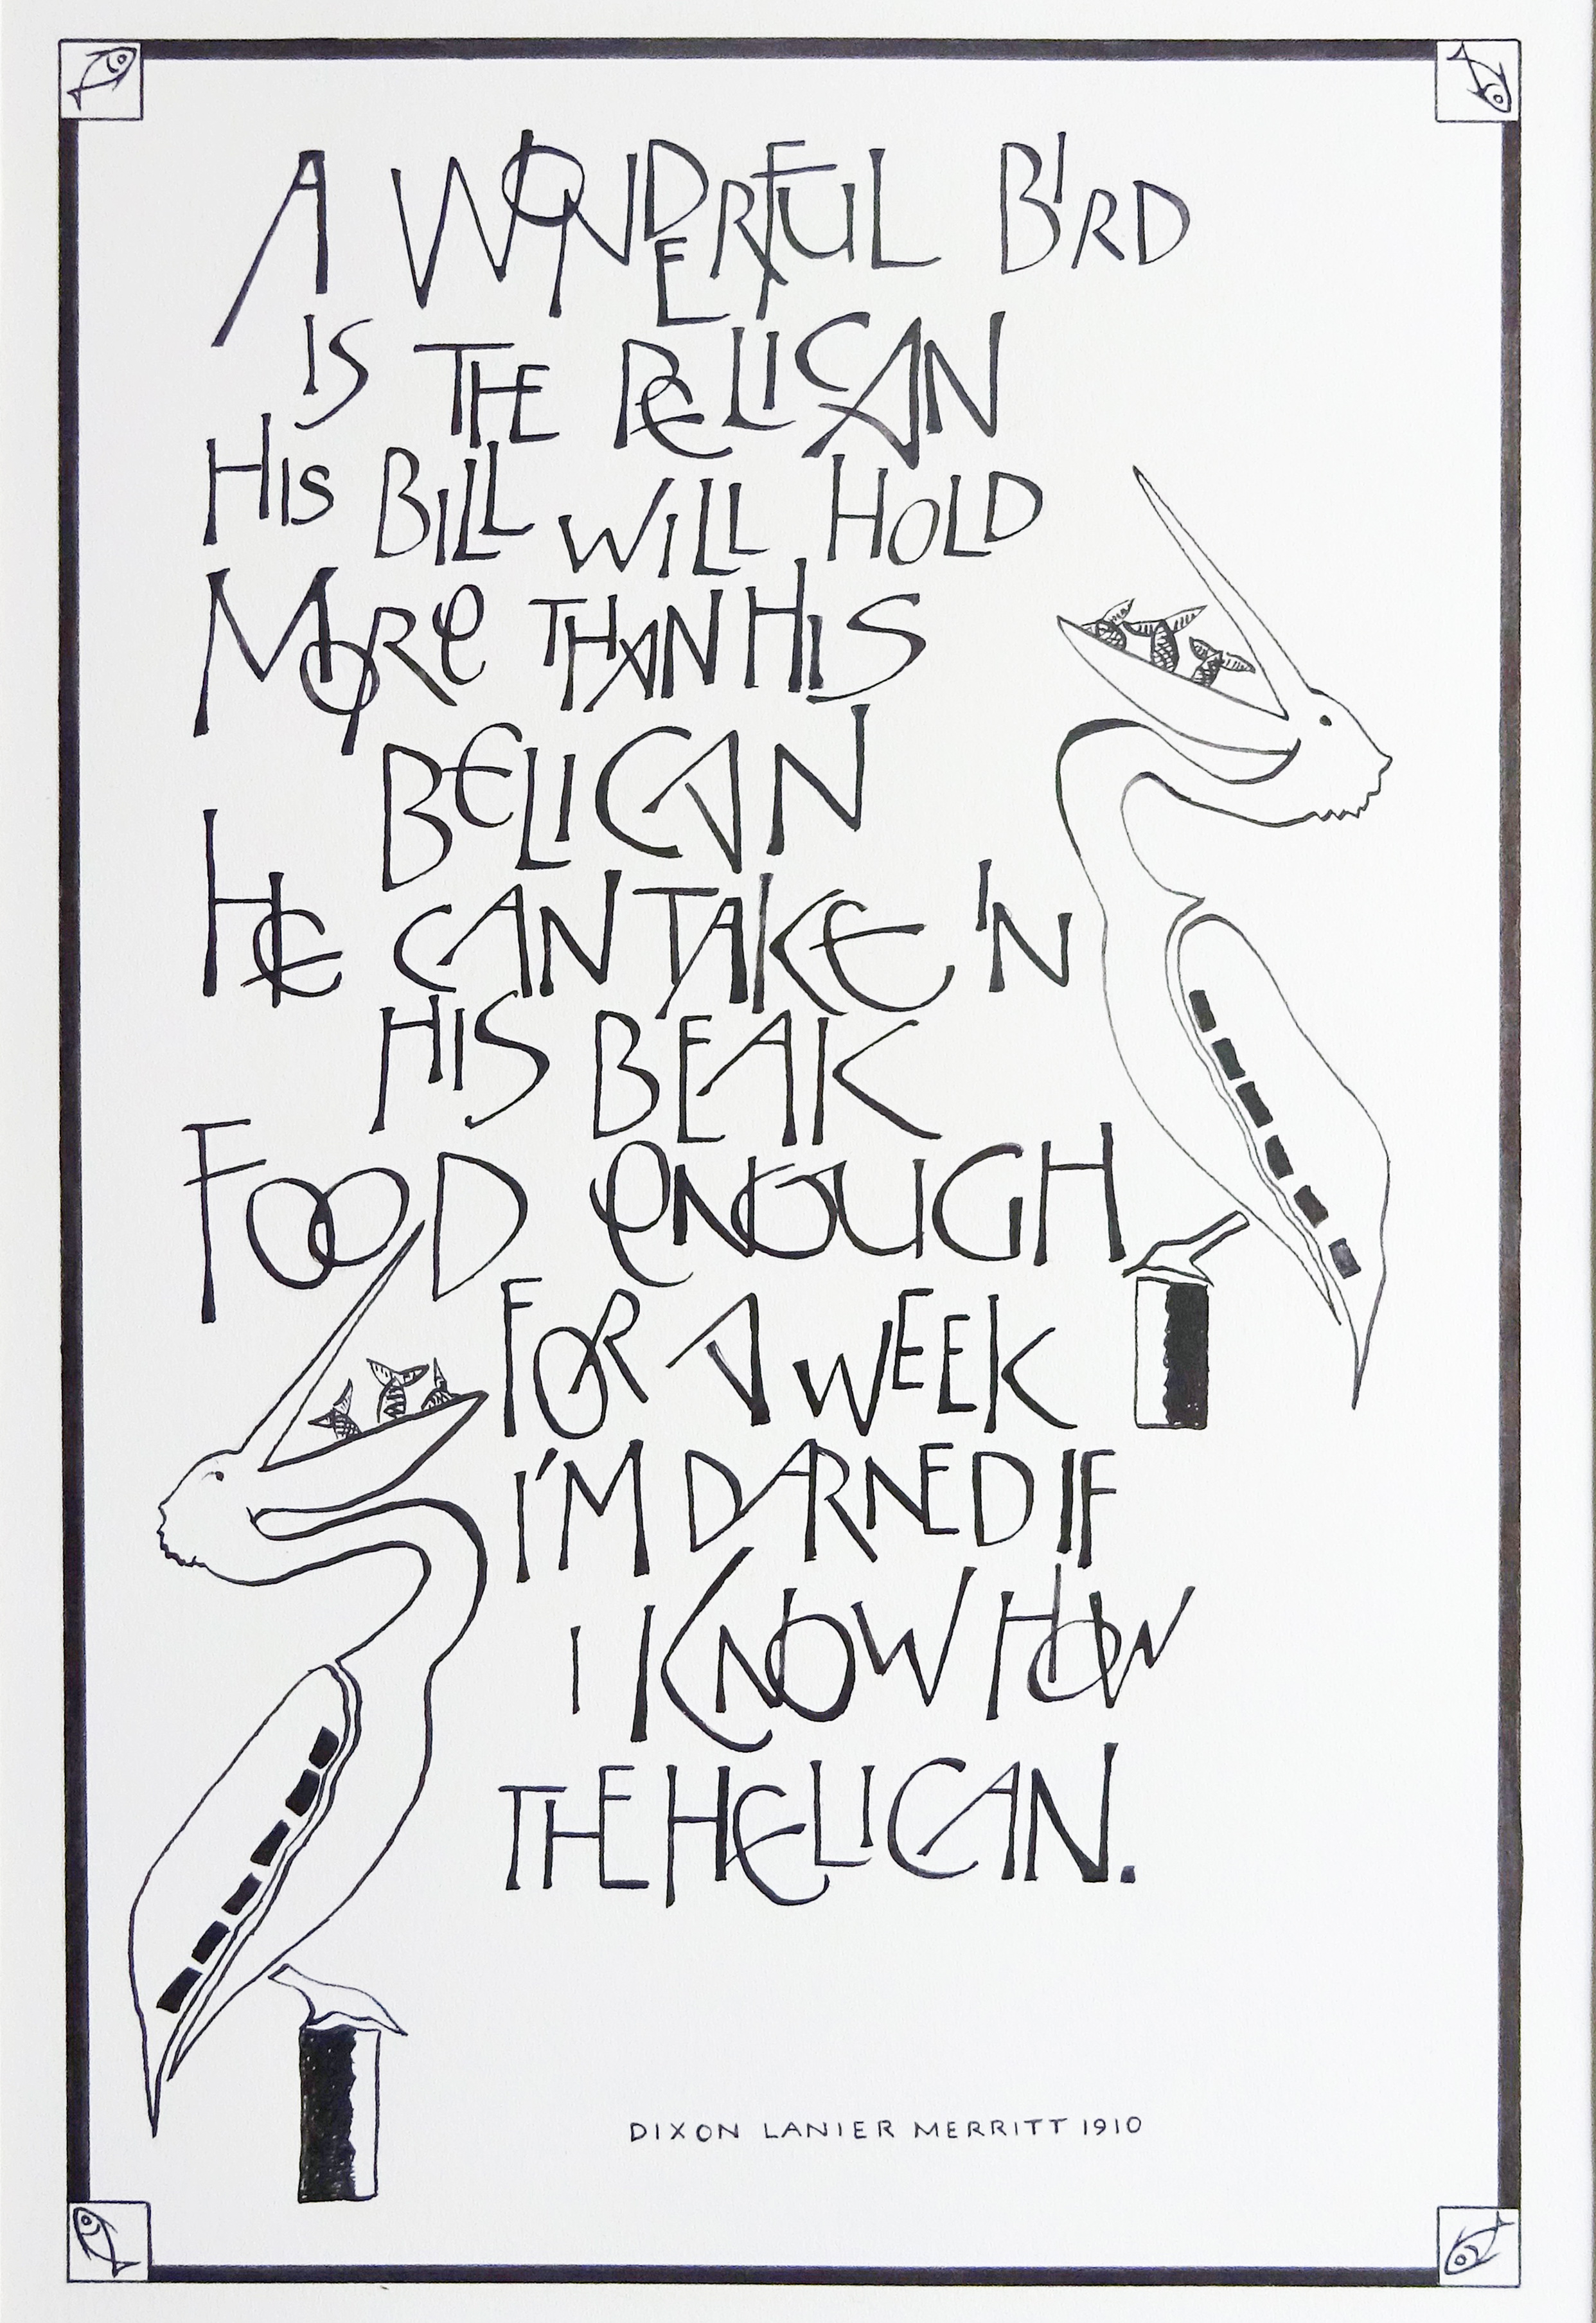 A WONDERFUL BIRD
IS THE PELICAN
HIS BILL WILL HOLD
MORE THAN HIS
BELICAN
HE CAN TAKE IN
HIS BEAK
FOOD ENOUGH
FOR A WEEK
I'M DARNED IF
I KNOW HOW
THE HELICAN.
DIXON LANIER MERRITT 1910